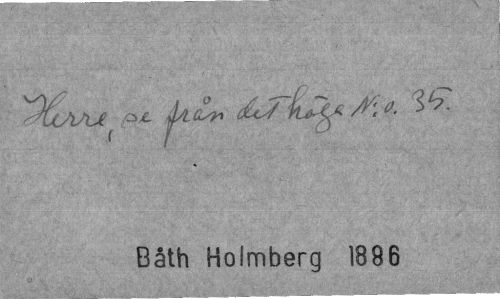 Herre, se från det höga N:o. 35.
Båth Holmberg 1886